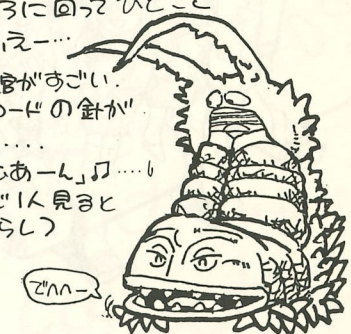 ろに回って ひとこと
えー…
官がすごい.
コードの針が
.....
あーん」♫....
ご1人見ると
らし)
でへへー